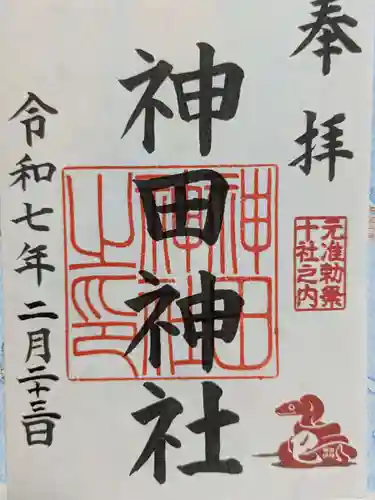 奉拝
元准勅祭
十社之内
神田神社
神田神社之印
令和七年二月二十三日